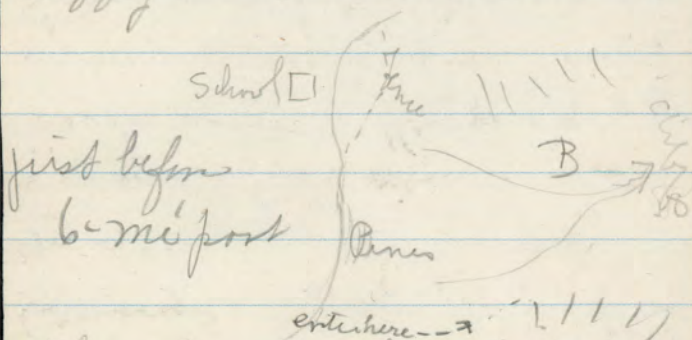 School
fence
just before
B
6-mi post
Pines
enter here